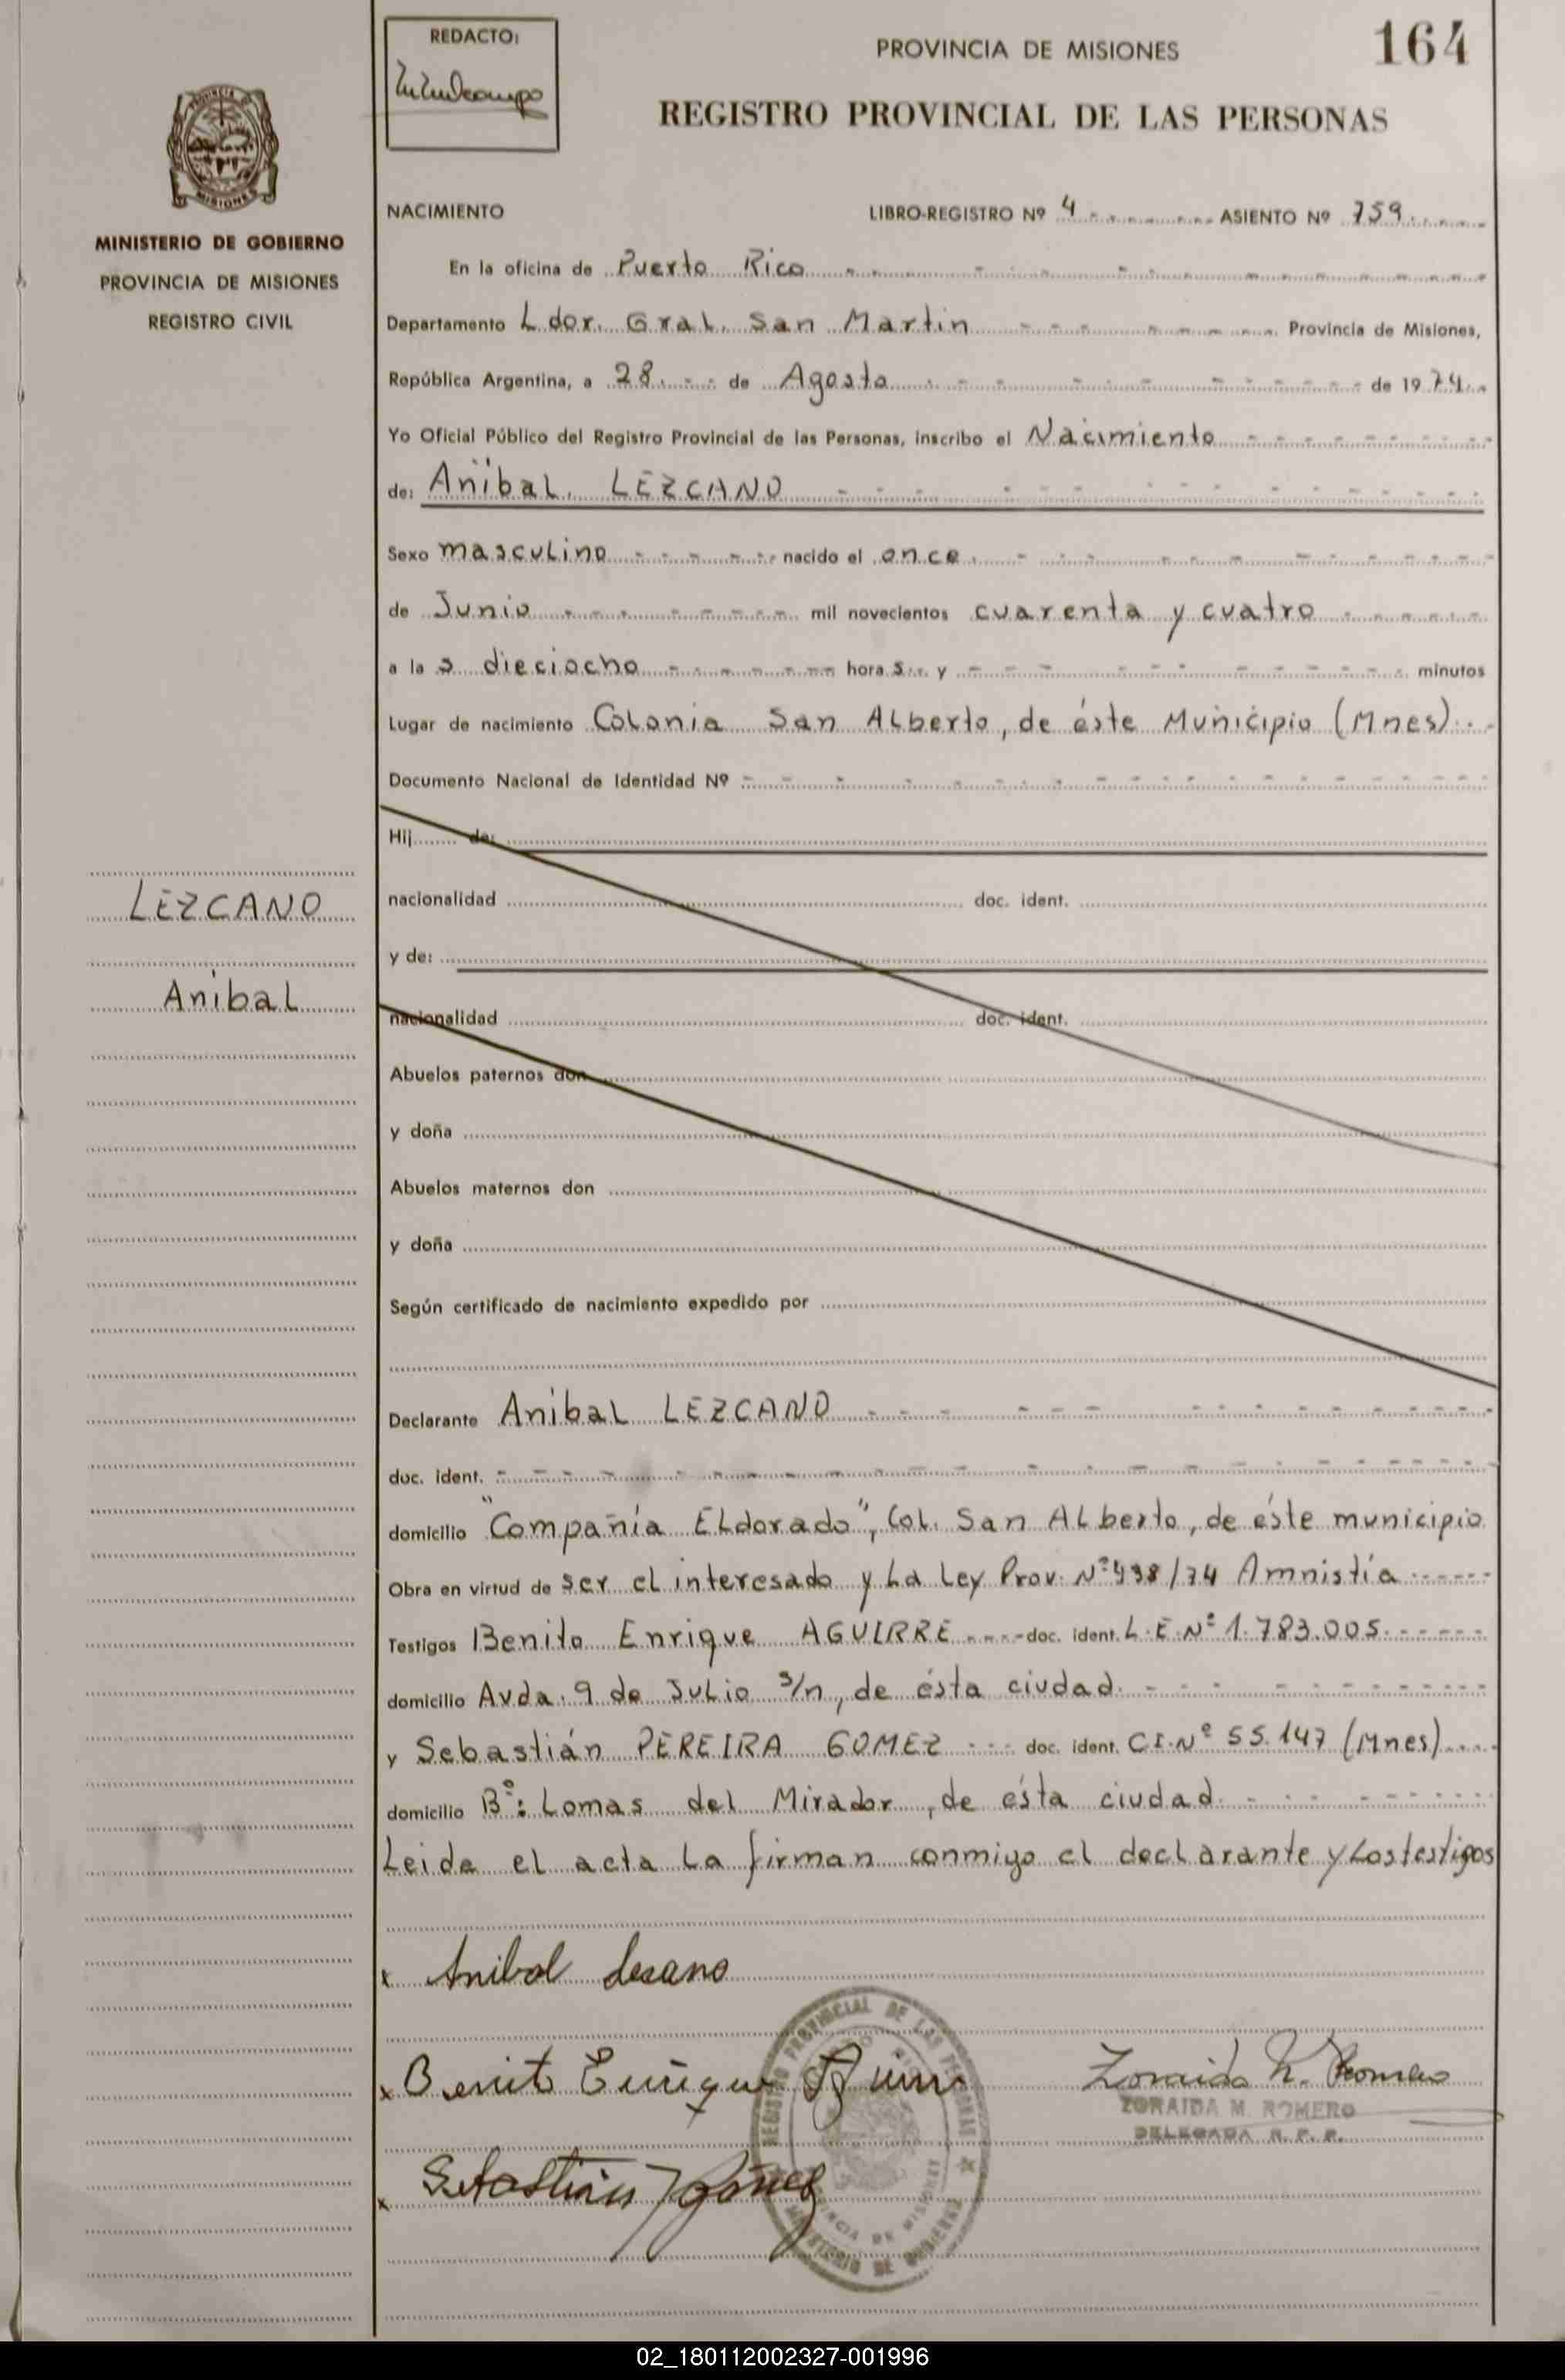 REDACTO:
164
PROVINCIA DE MISIONES
REGISTRO PROVINCIAL DE LAS PERSONAS
MISIONES
MINISTERIO DE GOBIERNO
PROVINCIA DE MISIONES
REGISTRO CIVIL
LEZCANO
Anibal
NACIMIENTO LIBRO-REGISTRO Nº 4 ASIENTO Nº 759
En la oficina de Puerto Rico
Departamento Ldor. Gral. San Martin Provincia de Misiones,
República Argentina, a 28 de Agosto de 1974
Yo Oficial Público del Registro Provincial de las Personas, inscribo el Nacimiento
de: Anibal LEZCANO
Sexo masculino nacido el once
de Junio mil novecientos cuarenta y cuatro
a las dieciocho horas y minutos
Lugar de nacimiento Colonia San Alberto, de éste Municipio (Mnes)
Documento Nacional de Identidad Nº
Hij de:
nacionalidad doc. ident.
y de:
nacionalidad doc. ident.
Abuelos paternos don
y doña
Abuelos maternos don
y doña
Según certificado de nacimiento expedido por
Declarante Anibal LEZCANO
doc. ident.
domicilio "Compañia Eldorado", Col. San Alberto, de éste municipio
Obra en virtud de ser el interesado y La Ley Prov. Nº 438/74 Amnistía
Testigos Benito Enrique AGUIRRE doc. ident. L.E Nº 1.783.005
domicilio Avda. 9 de Julio s/n, de ésta ciudad
y Sebastián PEREIRA GOMEZ doc. ident. C.I. Nº 55.147 (Mnes)
domicilio Bº: Lomas del Mirador, de ésta ciudad
Leida el acta La firman conmigo el declarante y Los testigos
x Anibal Lescano
x Benito Enrique
Zoraida M. Romero
ZORAIDA M. ROMERO
DELEGADA R. P. P.
x Sebastian Gómez
REGISTRO PROVINCIAL DE LAS PERSONAS
PROVINCIA DE MISIONES
MINISTERIO DE GOBIERNO
02_180112002327-001996